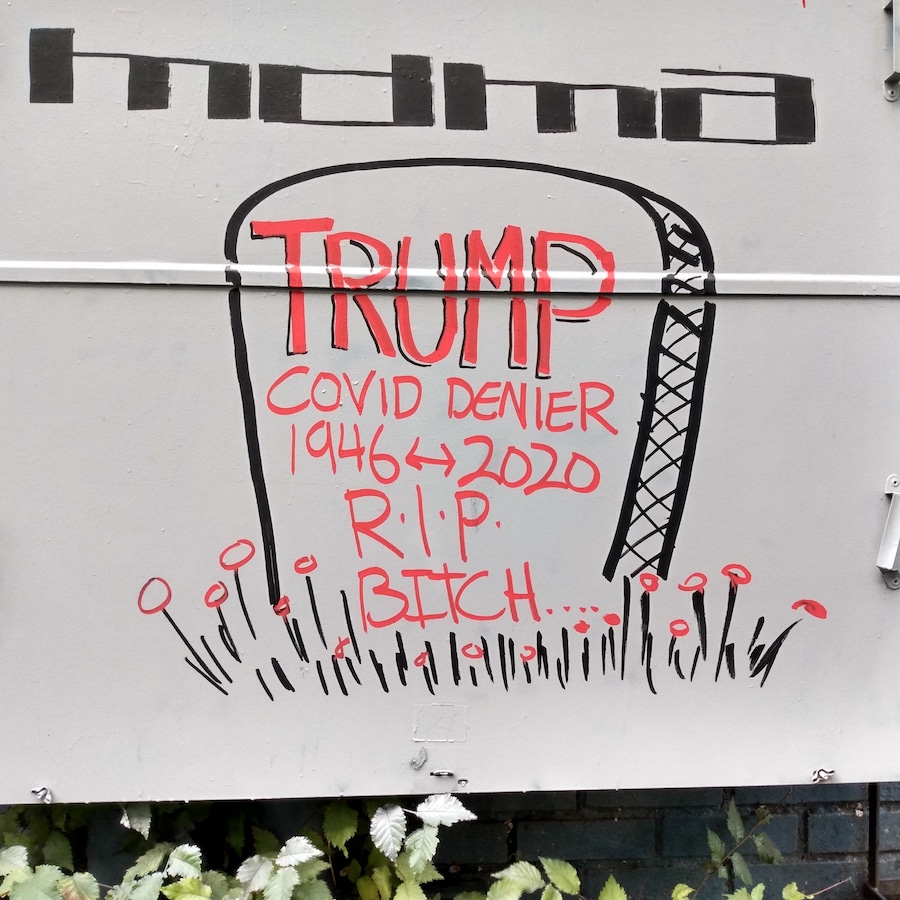 mdma
TRUMP
COVID DENIER
1946↔2020
R.I.P.
BITCH....